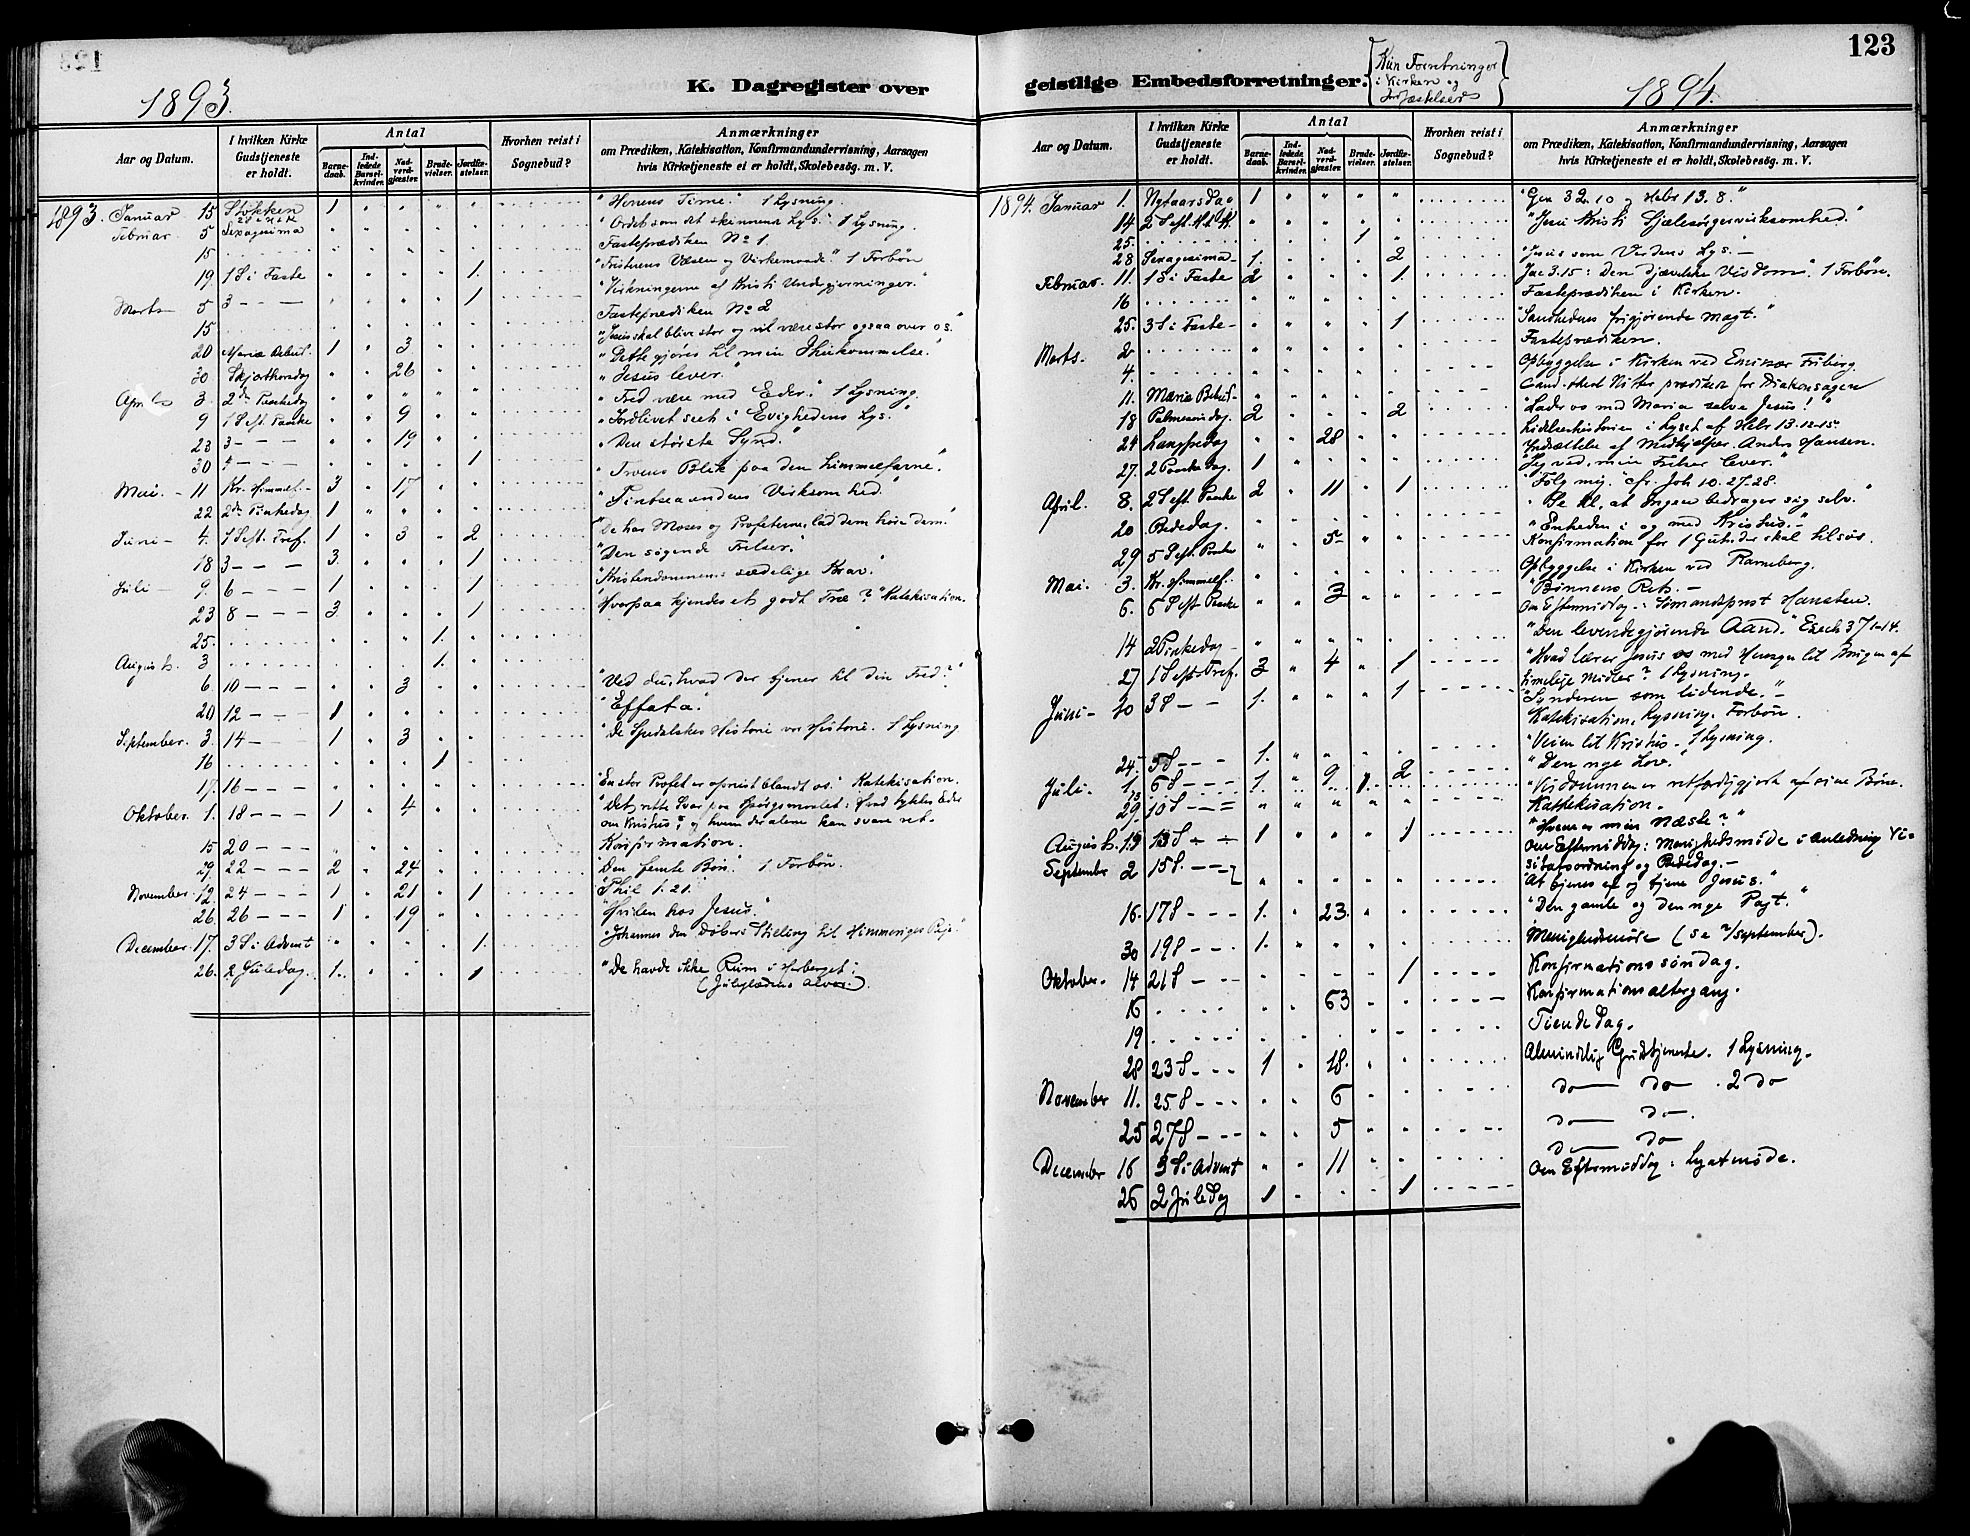 123
K. Dagregister over geistlige Embedsforretninger.
Kun Forretninger
i Kirken og
Jordfæstelser
1893.
1894.
Aar og Datum.
I hvilken Kirke Gudstjeneste er holdt.
Antal
Barnedaab.
Indledede Barselkvinder.
Nadverdgjæster.
Brudevielser.
Jordfæstelser.
Hvorhen reist i Sognebud?
Anmærkninger
om Prædiken, Katekisation, Konfirmandundervisning, Aarsagen
hvis Kirketjeneste ei er holdt, Skolebesög. m. V.
1893. Januar 15 1 1 Lysning.
Februar 5 Sexagesima "Ordet som det skinnende Lys." 1 Lysning.
15 Fasteprædiken No 1.
19 1 S i Faste 1. "Fristerens Væsen og Virkemaade." 1 Forbøn
Marts 5 3 - - - 1 "Virkningerne af Kristi Undergjerninger."
15 Fasteprædiken No 2
20 Mariæ Bebud. 1 3 "Jesus skal blive stor og vil være stor ogsaa over os."
30 Skjærthorsdag 26 "Dette gjøres til min Ihukommelse."
April 3. 2den Paaskedag "Jesus lever."
9 1 S eft. Paaske 9 "Fred være med Eder." 1 Lysning.
23 3 - - - 19 "Jordlivet seet i Evighedens Lys."
30 - - - 1 "Den største Synd."
Mai. 11 Kr. Himmelf. 3 17 "Troens Blik paa den himmelfarne."
22 2den Pinsedag 1 Virksomhed."
Juni 4. 1 S eft. Tref. 1 3 2 "De har Moses og Profeterne, lad dem høre dem."
18 3 - - - 3. 1 "Den søgende Frelser."
Juli 9. 6 - - - 1 1 "Kristendommens sædelige Krav."
23 8 - - - 3. 1 "Hvorpaa kjendes et godt Træ?" Katekisation.
25. 1.
August. 3 1.
6. 10 - - - 3 "Ved du, hvad der tjener til din Fred?"
20 12 - - - 1 "Effata."
September. 3. 14 - 1 3 "De Spedalskes Historie vor Historie. 1 Lysning
16 1
17. 16 - - - "En stor Profet er opreist blandt os." Katekisation.
Oktober. 1. 18 - - - 1 4 "Det rette Svar paa Spørgsmaalet: Hvad tykkes Eder
om Kristus?, og hvem der alene kan svare ret.
15 20 - - - Konfirmation.
29. 22 - - - 2 24 "Den femte Bøn." 1 Forbøn.
November. 12. 24 - - - 1 21 1 "Phil 1. 21."
26 26 - - - 1 19 "Hvilen hos Jesus."
December. 17. 3 S i Advent 1. "Johannes den Døbers Stilling til Himmeriges Rige."
26. 2 Juledag. 1. 1 "De havde ikke Rum i Herberget."
(Juleglædens Alvor.)
Aar og Datum.
I hvilken Kirke Gudstjeneste er holdt.
Antal
Barnedaab.
Indledede Barselkvinder.
Nadverdgjæster.
Brudevielser.
Jordfæstelser.
Hvorhen reist i Sognebud?
Anmærkninger
om Prædiken, Katekisation, Konfirmandundervisning, Aarsagen
hvis Kirketjeneste ei er holdt, Skolebesög. m. V.
1894. Januar 1. Nytaarsdag 1 "Gen 32. 10 og Hebr 13. 8."
14 2 S eft. H. 3 K. "Jesu Kristi Sjælesørgervirksomhed."
25. 1
28 Sexagesima 1. 2 "Jesus som Verdens Lys."
Februar. 11. 1 S i Faste 2 1. Jac 3.15: Den djævelske Visdom". 1 Forbøn.
16 Fasteprædiken i Kirken.
25. 3 S i Faste 1 "Sandhedens frigjørende Magt."
Marts. 2 Fasteprædiken.
4. Opbyggelse i Kirken ved Emissær Friberg.
11. Maria Bebud. Cand. prædiken for Diakonsagen
18 Palmesøndag. 2 2 "Lader os med Maria Jesus!"
24 Langfredag 28 Lidelseshistorien i Lyset af Hebr 13.12-15.
Indsættelse af Medhjælper Anders Hansen.
27. 2 Paaskedag. 1 "Jeg ved, min Frelser lever."
April. 8. 2 S eft. Paaske 2 11 1 "Følg mig. cfr. Joh 10. 27. 28.
20 Bededag. "Se til, at Ingen bedrager sig selv."
29 5 S eft. Paaske 5 "Enheden i og med Kristus."
Konfirmation for 1 Gut, der skal tilsøs.
Mai. 3. Kr. Himmelf. Opbyggelse i Kirken ved Ramberg.
6. 6 S eft Paaske 3 "Bønnens Ret."
Om Eftermiddag: Sømandsprest Hansteen.
14 2 Pinsedag "Den levendegjørende Aand." Ezech 37 1-14.
27 1 S eft. Tref. 3 4 1 "Hvad lærer Jesus os med Hensyn til Brugen af
timelige Midler? 1 Lysning.
Juni 10 3 S - - 1. 1 "Synderen som lidende."
Katekisation. Lysning. Forbøn.
24. 5 S - - - 1. "Veien til Kristus." 1 Lysning.
Juli. 1. 6 S - - - 1. 9 1 2 "Den nye Lov."
29. 10 S - - "Visdommen er retfærdiggjort af sine Børn.
Katekisation.
August. 19 13 S - - 1 1 "Hvem er min Næste?"
Om Eftermiddag: Menighedsmøde i anledning Visitatsordning og Bededag.
September 2 15 S. - - "At tjenes af og tjene Jesus."
16. 17 S - - - 1. 23. "Den gamle og den nye Pagt."
30 19 S - - 1. Menighedsmøde (se 2/September).
Oktober. 14 21 S - - 1 Konfirmationssøndag.
16 63 Konfirmationsaltergang.
19 Tiendedag.
28 23 S - - - 1 18. Almindelig Gudstjeneste. 1 Lysning.
November 11. 25 S - - - 6 do do. 2 do
25 27 S - - - 5 do do.
December 16 3 S i Advent 11 do do
Om Eftermiddag:
26 2 Juledag 1 1